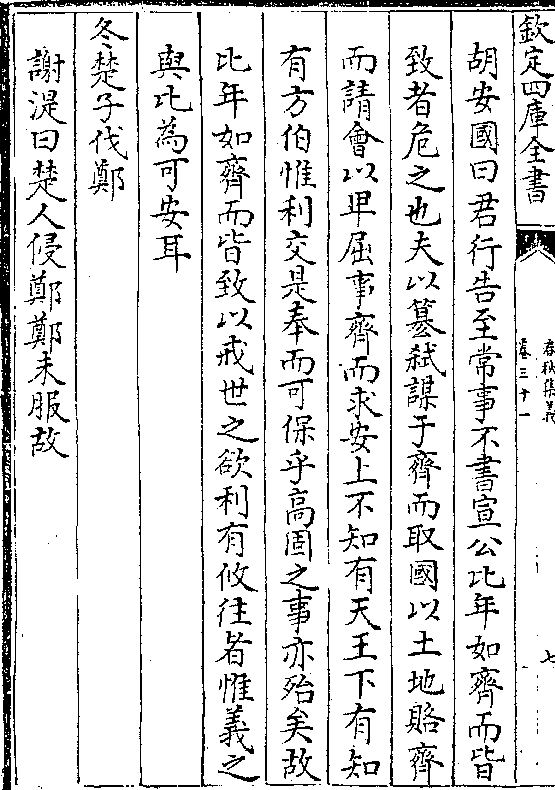 欽定四庫全書
春秋集義
卷三十一
七
胡安國曰君行告至常事不書宣公比年如齊而皆
致者危之也夫以簒弑謀于齊而取國以土地賂齊
而請會以卑屈事齊而求安上不知有天王下有知
有方伯惟利交是奉而可保乎高固之事亦殆矣故
比年如齊而皆致以戒世之欲利有攸往者惟義之
與比為可安耳
冬楚子伐鄭
謝湜曰楚人侵鄭鄭未服故